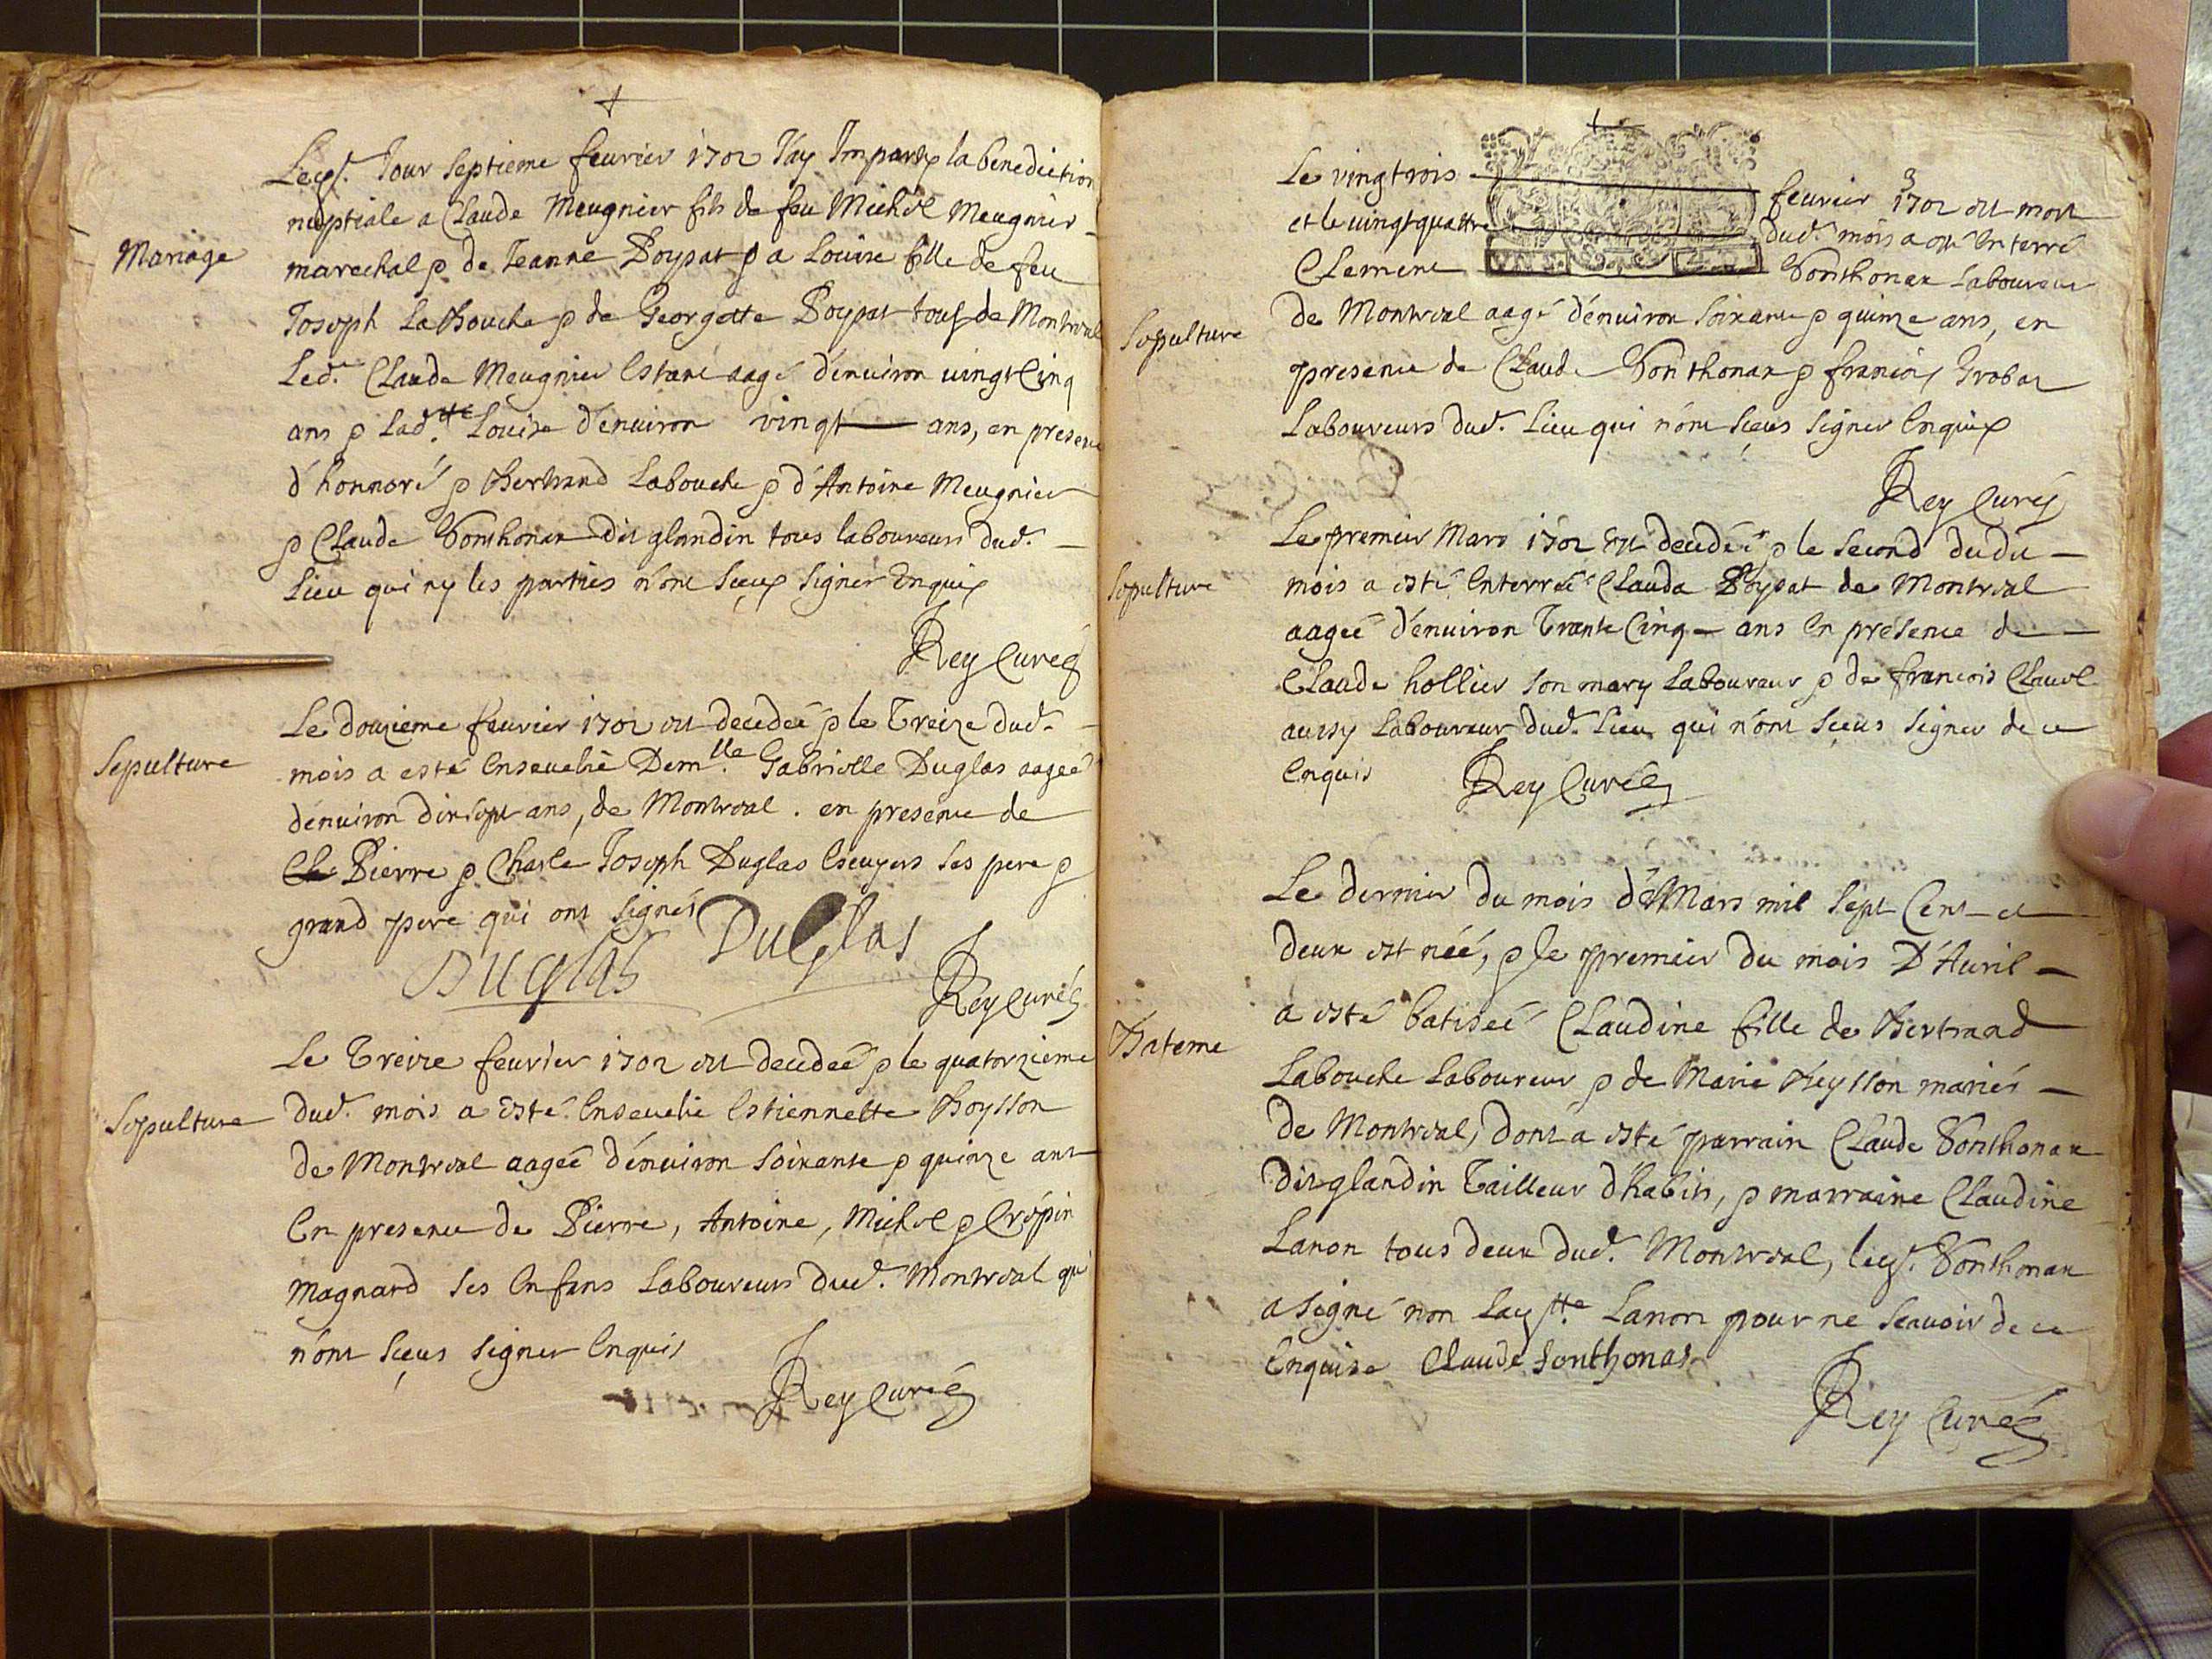 Lecy.st Jour Septieme feurier 1702 J'ay Imparty la benediction
nuptiale a Claude Meugnier fils de feu Michel Meugnier
Mariage
marechal & de Jeanne Poypat & a Louise fille de feu
Joseph LaBouche & de Georgette Poypat tous de Montreal
Led.t Claude Meugnier Estant aagé d'enuiron uingt Cinq
ans & Lad.tte Louise d'enuiron vingt ans, en presence
d'honnoré & Bertrand Labouche & d'Antoine Meugnier
& Claude Sonthonax dit glandin tous laboureurs dud.
Lieu qui ny les parties n'ont sceus signer Enquis
Rey Curé
Le douzieme feurier 1702 est decedeé & le Treize dud.
Sepulture
mois a esté Enseuelie Dem.lle Gabrielle Duglas aageé
d'enuiron dixsept ans, de Montreal. en presence de
Che Pierre & Charle Joseph Duglas Escuyers ses pere &
grand pere qui ont signés
Duglas
Duglas
Rey Curé
Le Treize feurier 1702 est decedeé & le quatorzieme
Sepulture
dud. mois a esté Enseuelie Estiennette Boysson
de Montreal aageé d'enuiron soixante & quinze ans
En presence de Pierre, Antoine, Michel & Crépin
Magnard ses Enfans Laboureurs dud. Montreal qui
n'ont sceus signer Enquis
Rey Curé
Le vingtrois feurier 1702 est mort
et le uingtquattre dud. mois a esté Enterré
Clement Sonthonax Laboureur
Sepulture
de Montreal aagé d'enuiron soixante & quinze ans, en
presence de Claude Sonthonax & francois Grobas
Laboureurs dud. Lieu qui n'ont sceus signer Enquis
Rey Curé
Le premier Mars 1702 est decedeé & le second dudit
Sepulture
mois a esté Enterreé Clauda Poypat de Montreal
aageé d'enuiron Trante Cinq ans En presence de
Claude hollier son mary Laboureur & de francois Clauel
aussy Laboureur dud. Lieu qui n'ont sceus signer de ce
Enquis Rey Curé
Le dernier du mois de Mars mil sept Cent et
deux est neé, & le premier du mois D'Auril
a esté batiseé Claudine fille de Bertrand
Bateme
Labouche Laboureur & de Marie Beysson mariés
de Montreal, dont a esté parrain Claude Sonthonax
dit glandin Tailleur d'habits, & marraine Claudine
Lanon tous deux dud. Montreal, lecy.st Sonthonax
a signé non Lacy.tte Lanon pour ne scauoir de ce
Enquise Claude Sonthonas
Rey Curé